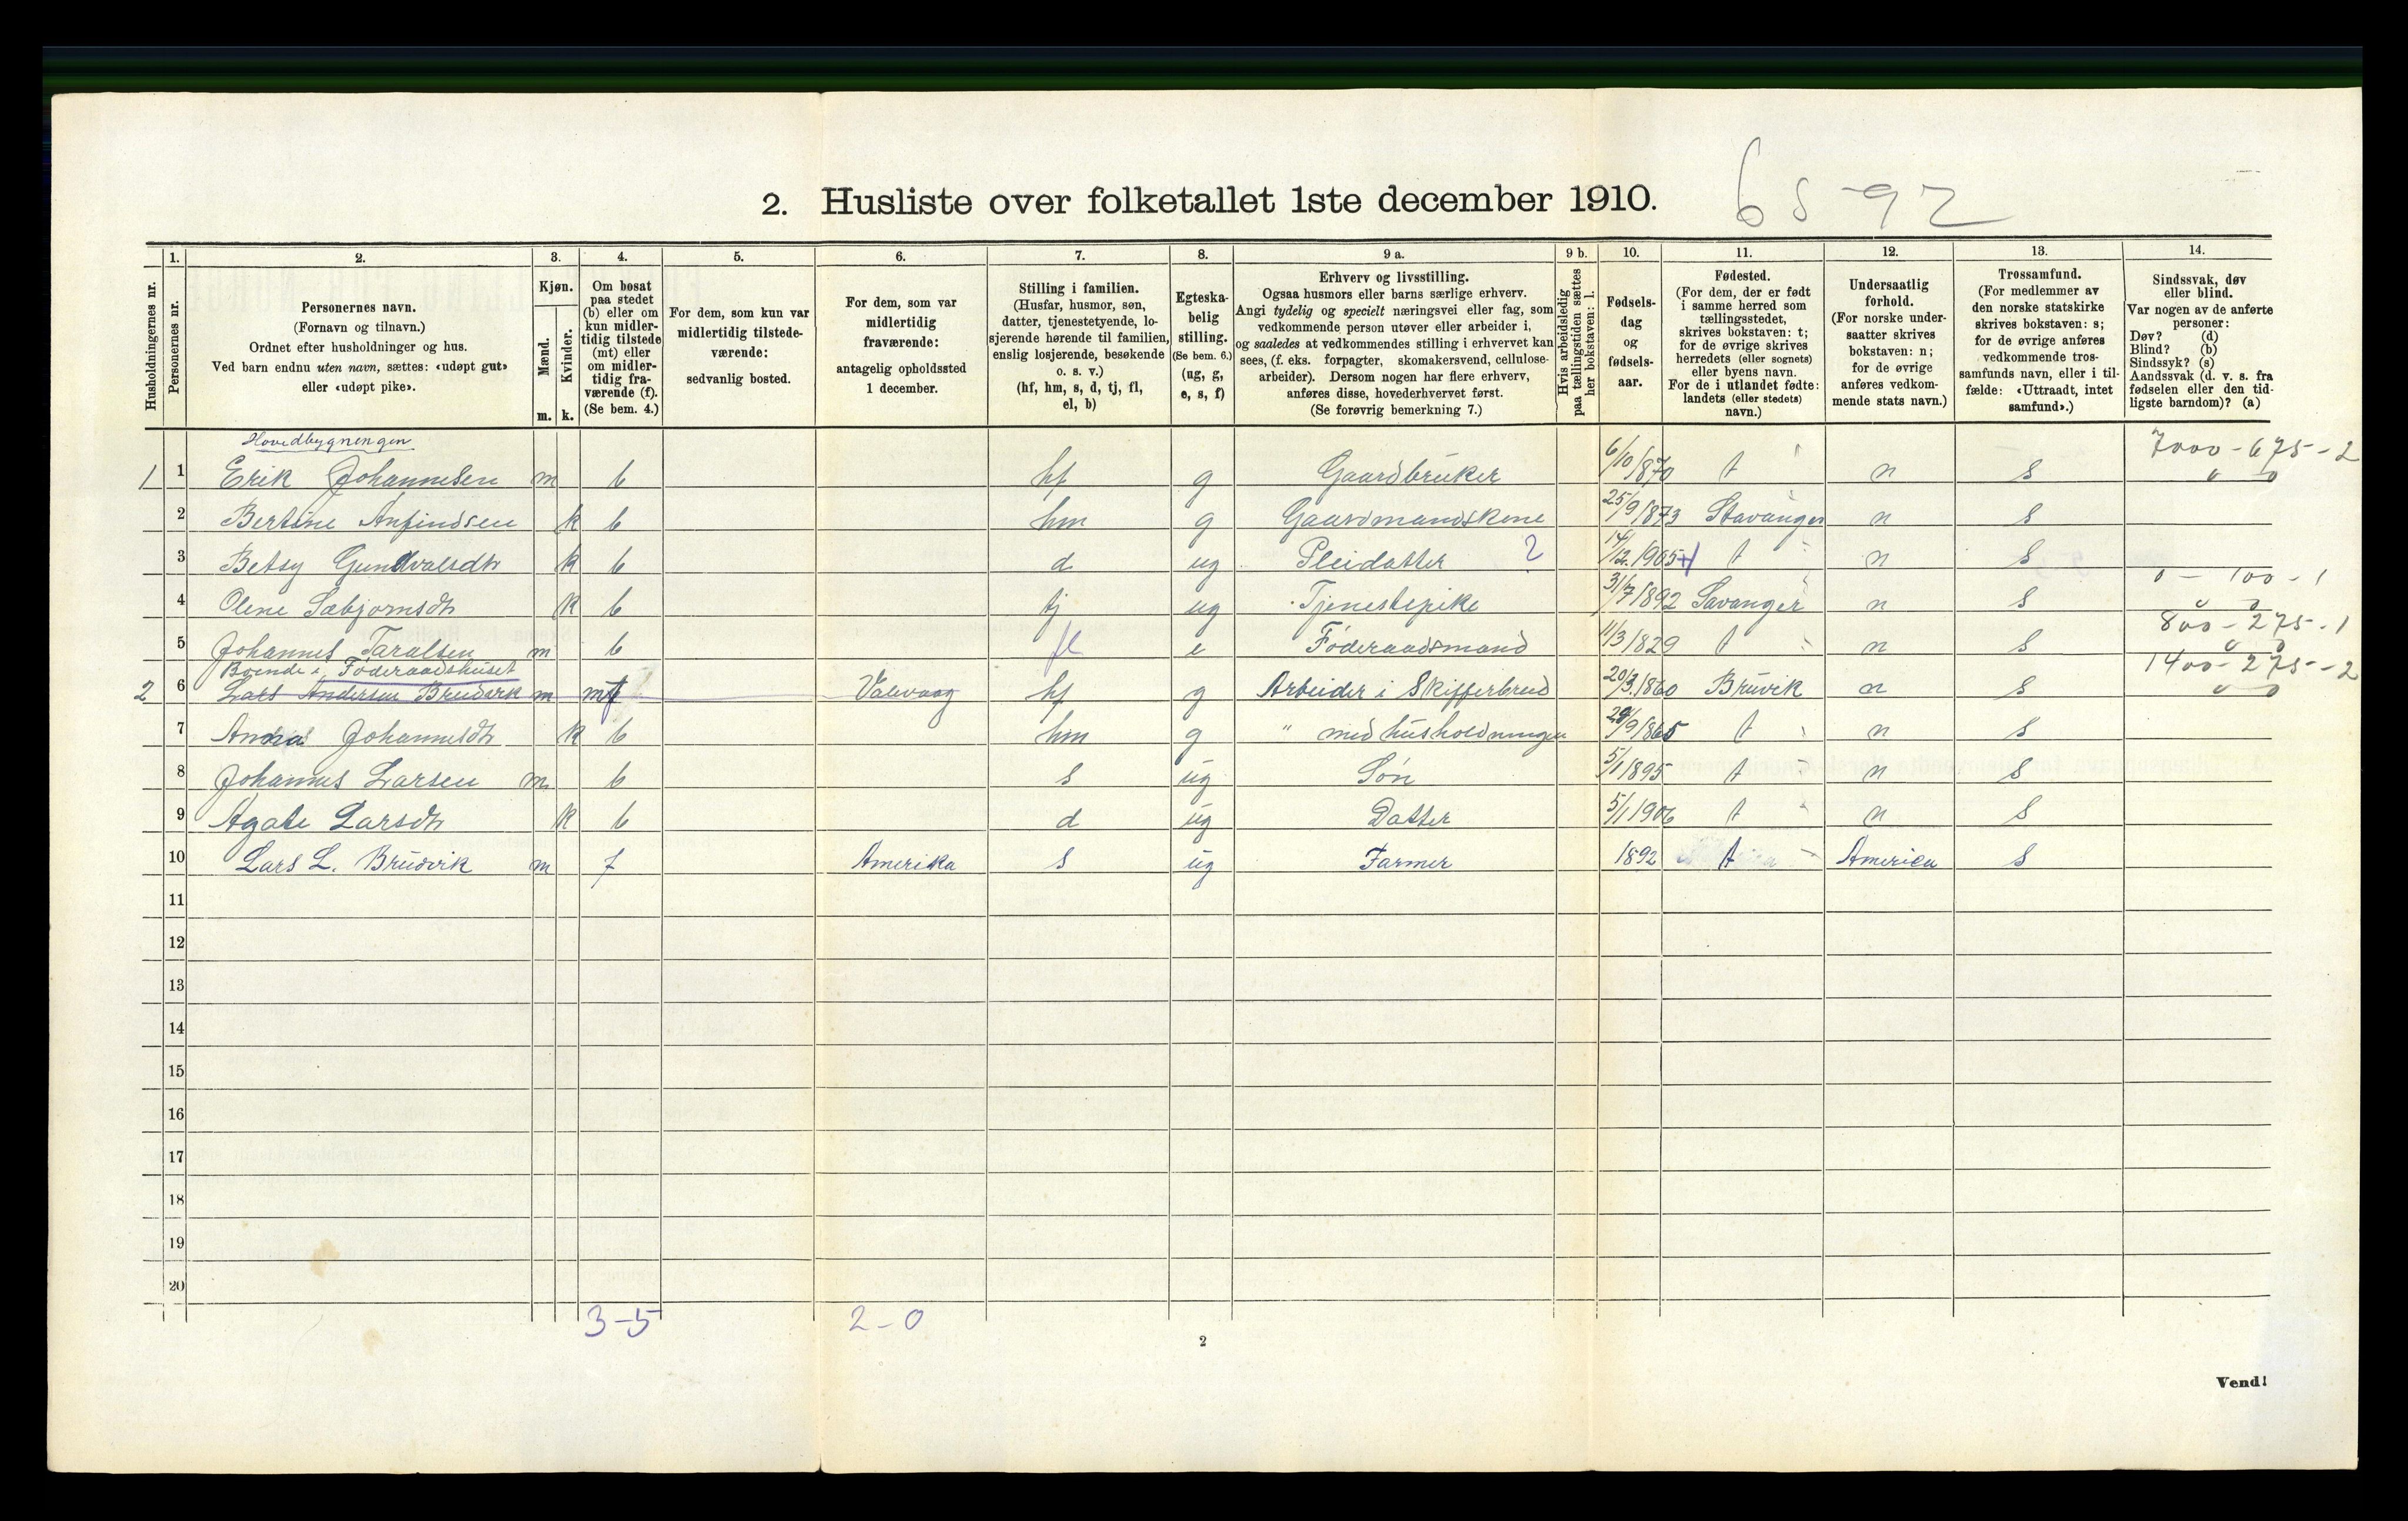 2. Husliste over folketallet 1ste december 1910.
6 5 - 92
Husholdningernes nr.
1. Personernes nr.
2. Personernes navn. (Fornavn og tilnavn.) Ordnet efter husholdninger og hus. Ved barn endnu uten navn, sættes: «udøpt gut» eller «udøpt pike».
3. Kjøn. Mænd. m. Kvinder. k.
4. Om bosat paa stedet (b) eller om kun midlertidig tilstede (mt) eller om midlertidig fraværende (f). (Se bem. 4.)
5. For dem, som kun var midlertidig tilstedeværende: sedvanlig bosted.
6. For dem, som var midlertidig fraværende: antagelig opholdssted 1 december.
7. Stilling i familien. (Husfar, husmor, søn, datter, tjenestetyende, losjerende hørende til familien, enslig losjerende, besøkende o. s. v.) (hf, hm, s, d, tj, fl, el, b)
8. Egteskabelig stilling. (Se bem. 6.) (ug, g, e, s, f)
9 a. Erhverv og livsstilling. Ogsaa husmors eller barns særlige erhverv. Angi tydelig og specielt næringsvei eller fag, som vedkommende person utøver eller arbeider i, og saaledes at vedkommendes stilling i erhvervet kan sees, (f. eks. forpagter, skomakersvend, cellulosearbeider). Dersom nogen har flere erhverv, anføres disse, hovederhvervet først. (Se forøvrig bemerkning 7.)
9 b. Hvis arbeidsledig paa tællingstiden sættes her bokstaven: l.
10. Fødselsdag og fødselsaar.
11. Fødested. (For dem, der er født i samme herred som tællingsstedet, skrives bokstaven: t; for de øvrige skrives herredets (eller sognets) eller byens navn. For de i utlandet fødte: landets (eller stedets) navn.)
12. Undersaatlig forhold. (For norske undersaatter skrives bokstaven: n; for de øvrige anføres vedkommende stats navn.)
13. Trossamfund. (For medlemmer av den norske statskirke skrives bokstaven: s; for de øvrige anføres vedkommende trossamfunds navn, eller i tilfælde: «Uttraadt, intet samfund».)
14. Sindssvak, døv eller blind. Var nogen av de anførte personer: Døv? (d) Blind? (b) Sindssyk? (s) Aandssvak (d. v. s. fra fødselen eller den tidligste barndom)? (a)
Hovedbygningen
7000 - 675 - 2
1 1 Erik Johannesen m b hf g Gaardbruker 6/10/870 t n s
2 Bertine Anfindsen k b hm g Gaardmandskone 25/9/873 Stavanger n s
3 Betsy Gundvalsdtr k b d ug Pleidatter ? 14/12.1905 t n s
0 - 100 - 1
4 Olene Sæbjornsdtr k b tj ug Tjenestepike 31/7/1892 Savanger n s
800 - 275 - 1
5 Johannes Taralsen m b fl e Føderaadsmand 11/3/1829 t n s
Boende i Føderaadshuset
1400 - 275 - 2
2 6 Lars Andersen Brudvik m mt f Valevaag hf g Arbeider i Skifferbrud 20/3.1860 Bruvik n s
7 Anna Johannesdtr k b hm g " med husholdningen 29/9/865 t n s
8 Johannes Larsen m b s ug Søn 5/1 1895 t n s
9 Agate Larsdtr k b d ug Datter 5/1 1906 t n s
10 Lars L. Brudvik m f Amerika s ug Farmer 1892 t America s
11
12
13
14
15
16
17
18
19
20
3-5 2-0
2
Vend!